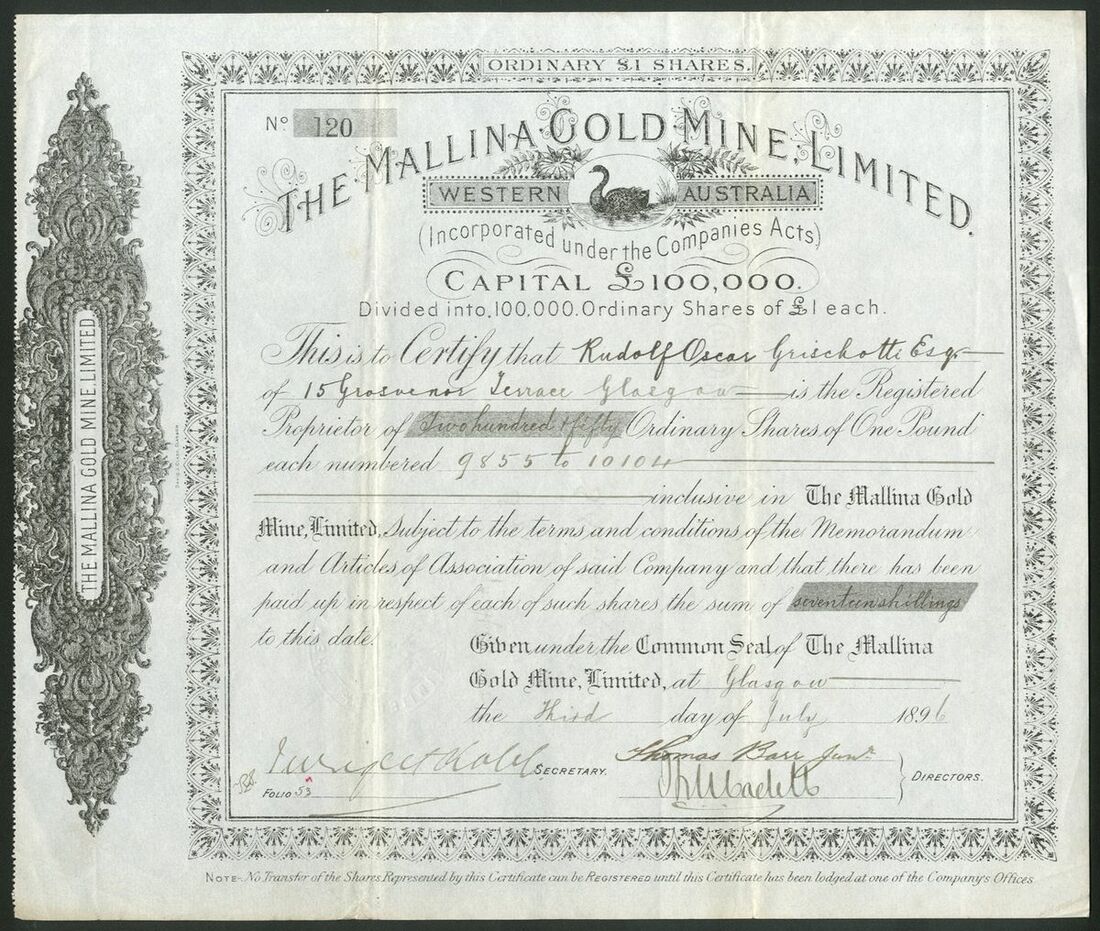 ORDINARY £1 SHARES.
No 120
THE MALLINA GOLD MINE, LIMITED.
WESTERN AUSTRALIA
(Incorporated under the Companies Acts)
CAPITAL £100,000.
Divided into 100,000 Ordinary Shares of £1 each.
This is to Certify that Rudolf Oscar Grischotti Esqr
of 15 Grosvenor Terrace Glasgow is the Registered
Proprietor of Two hundred & fifty Ordinary Shares of One Pound
each numbered 9855 to 10104
inclusive in The Mallina Gold
Mine, Limited, Subject to the terms and conditions of the Memorandum
and Articles of Association of said Company and that there has been
paid up in respect of each of such shares the sum of seventeen shillings
to this date.
Given under the Common Seal of The Mallina
Gold Mine, Limited, at Glasgow
the Third day of July 1896
SECRETARY.
Thomas Barr Junr.
DIRECTORS.
FOLIO 53
NOTE.- No Transfer of the Shares Represented by this Certificate can be REGISTERED until this Certificate has been lodged at one of the Company's Offices.
THE MALLINA GOLD MINE, LIMITED